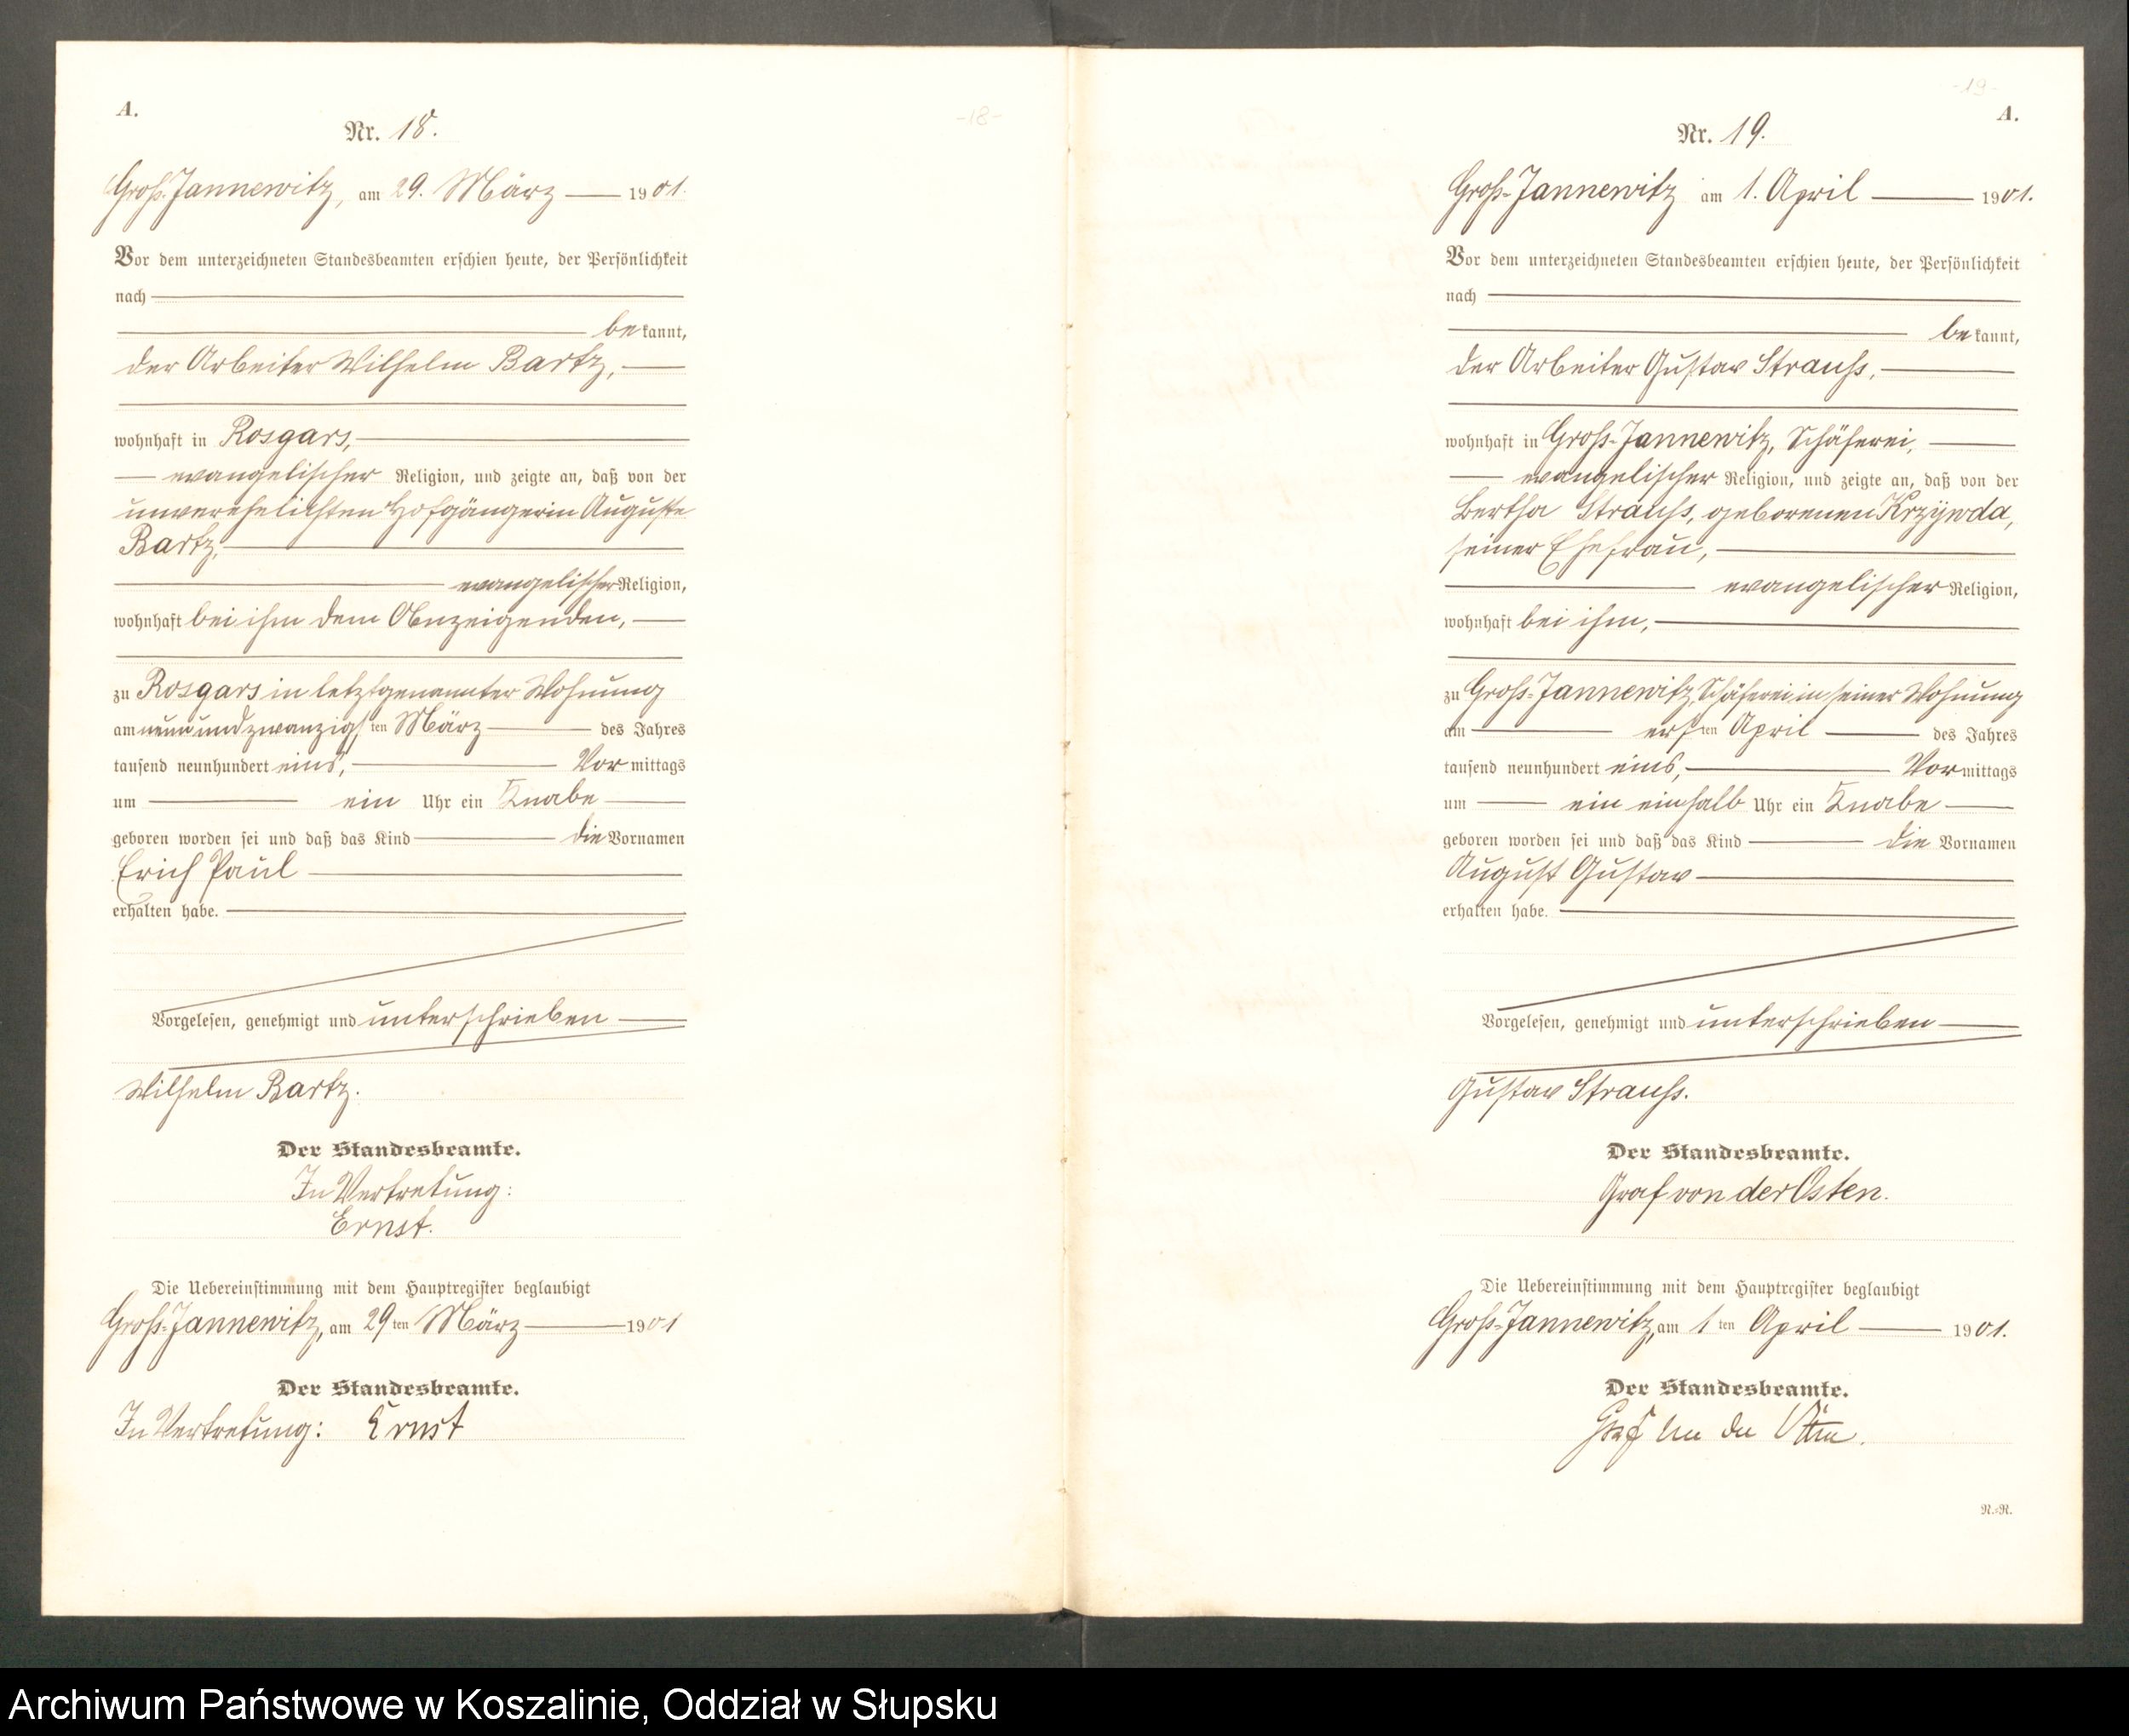 A.
Nr. 18.
Groß-Jannewitz, am 29. März 1901.
Vor dem unterzeichneten Standesbeamten erschien heute, der Persönlichkeit
nach
bekannt,
der Arbeiter Wilhelm Bartz,
wohnhaft in Rosgars,
evangelischer Religion, und zeigte an, daß von der
unverehelichten Hofgängerin Auguste
Bartz,
evangelischer Religion,
wohnhaft bei ihm dem Anzeigenden,
zu Rosgars in letztgenannter Wohnung
am neunundzwanzigsten März des Jahres
tausend neunhundert eins, Vormittags
um ein Uhr ein Knabe
geboren worden sei und daß das Kind die Vornamen
Erich Paul
erhalten habe.
Vorgelesen, genehmigt und unterschrieben
Wilhelm Bartz.
Der Standesbeamte.
In Vertretung:
Ernst.
Die Uebereinstimmung mit dem Hauptregister beglaubigt
Groß-Jannewitz, am 29ten März 1901
Der Standesbeamte.
In Vertretung: Ernst
-18-
-19-
A.
Nr. 19.
Groß-Jannewitz am 1. April 1901.
Vor dem unterzeichneten Standesbeamten erschien heute, der Persönlichkeit
nach
bekannt,
der Arbeiter Gustav Strauß,
wohnhaft in Groß-Jannewitz, Schäferei,
evangelischer Religion, und zeigte an, daß von der
Bertha Strauß, geborenen Krzywda,
seiner Ehefrau,
evangelischer Religion,
wohnhaft bei ihm,
zu Groß-Jannewitz, Schäferei in seiner Wohnung
am ersten April des Jahres
tausend neunhundert eins, Vormittags
um ein einhalb Uhr ein Knabe
geboren worden sei und daß das Kind die Vornamen
August Gustav
erhalten habe.
Vorgelesen, genehmigt und unterschrieben
Gustav Strauß.
Der Standesbeamte.
Graf von der Osten.
Die Uebereinstimmung mit dem Hauptregister beglaubigt
Groß-Jannewitz, am 1ten April 1901.
Der Standesbeamte.
Graf von der Osten.
N.-R.
Archiwum Państwowe w Koszalinie, Oddział w Słupsku